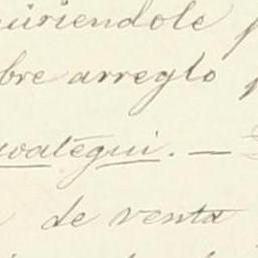 uiriendole p
bre arreglo p
watégui. —
de venta